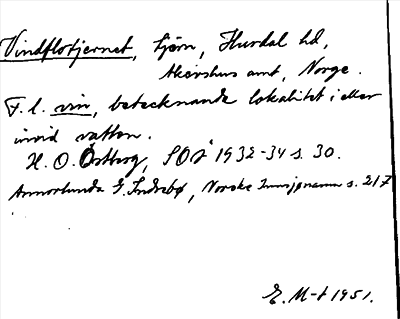 Vindflotjernet, tjørn, Hurdal hd,
Akershus amt, Norge.
F. l. vin, betecknande lokalitet i eller
invid vatten.
H. O. Östberg, SOÅ 1932-34 s. 30.
Annorlunda G. Indrebø, Norske Innsjønamn s. 217
E. M-t 1951.